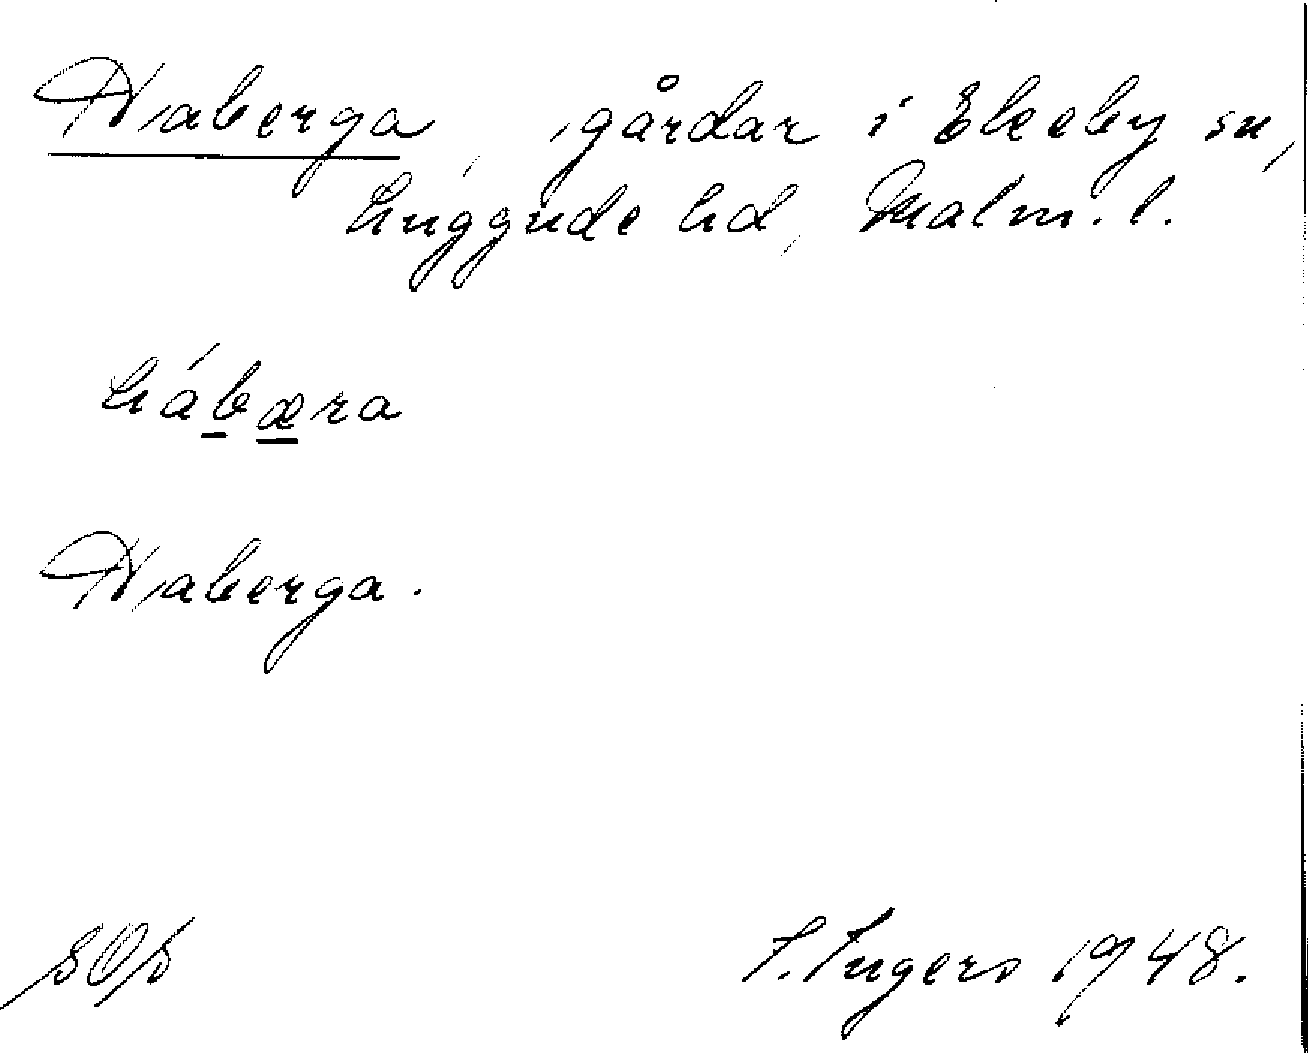 Haberga, gårdar i Ekeby sn,
Luggude hd, Malm. l.
hábæra
Haberga.
SOS
I. Ingers 1948.